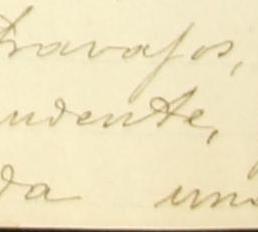 travajos,
udente,
da un